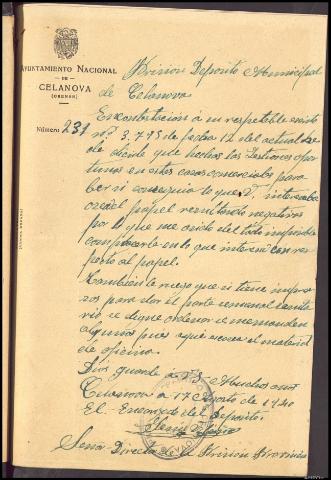 AYUNTAMIENTO NACIONAL
DE
CELANOVA
(ORENSE)
Número 231
Prision Deposito Municipal
de Celanova
En contestación á su respetable escrito
nº 3.775 de fecha 12 del actual
de que hechas las Gestiones opor
tunas en estas casas comerciales para
ber si conseguia lo que V. interesaba
el papel resultando negativas
por lo que me es del todo imposible
complacerle en lo que interesa con res
pecto al papel.
Tambien le ruego que si tiene impre
sos para dar el parte semanal sanita
rio se digne ordenar se me manden
algunos pues aqui escasea el material
de oficina.
Dios guarde a V.S. Muchos años
Celanova a 17 Agosto de 1940
El Encargado del Deposito.
Señor Director de la Prision Provincial